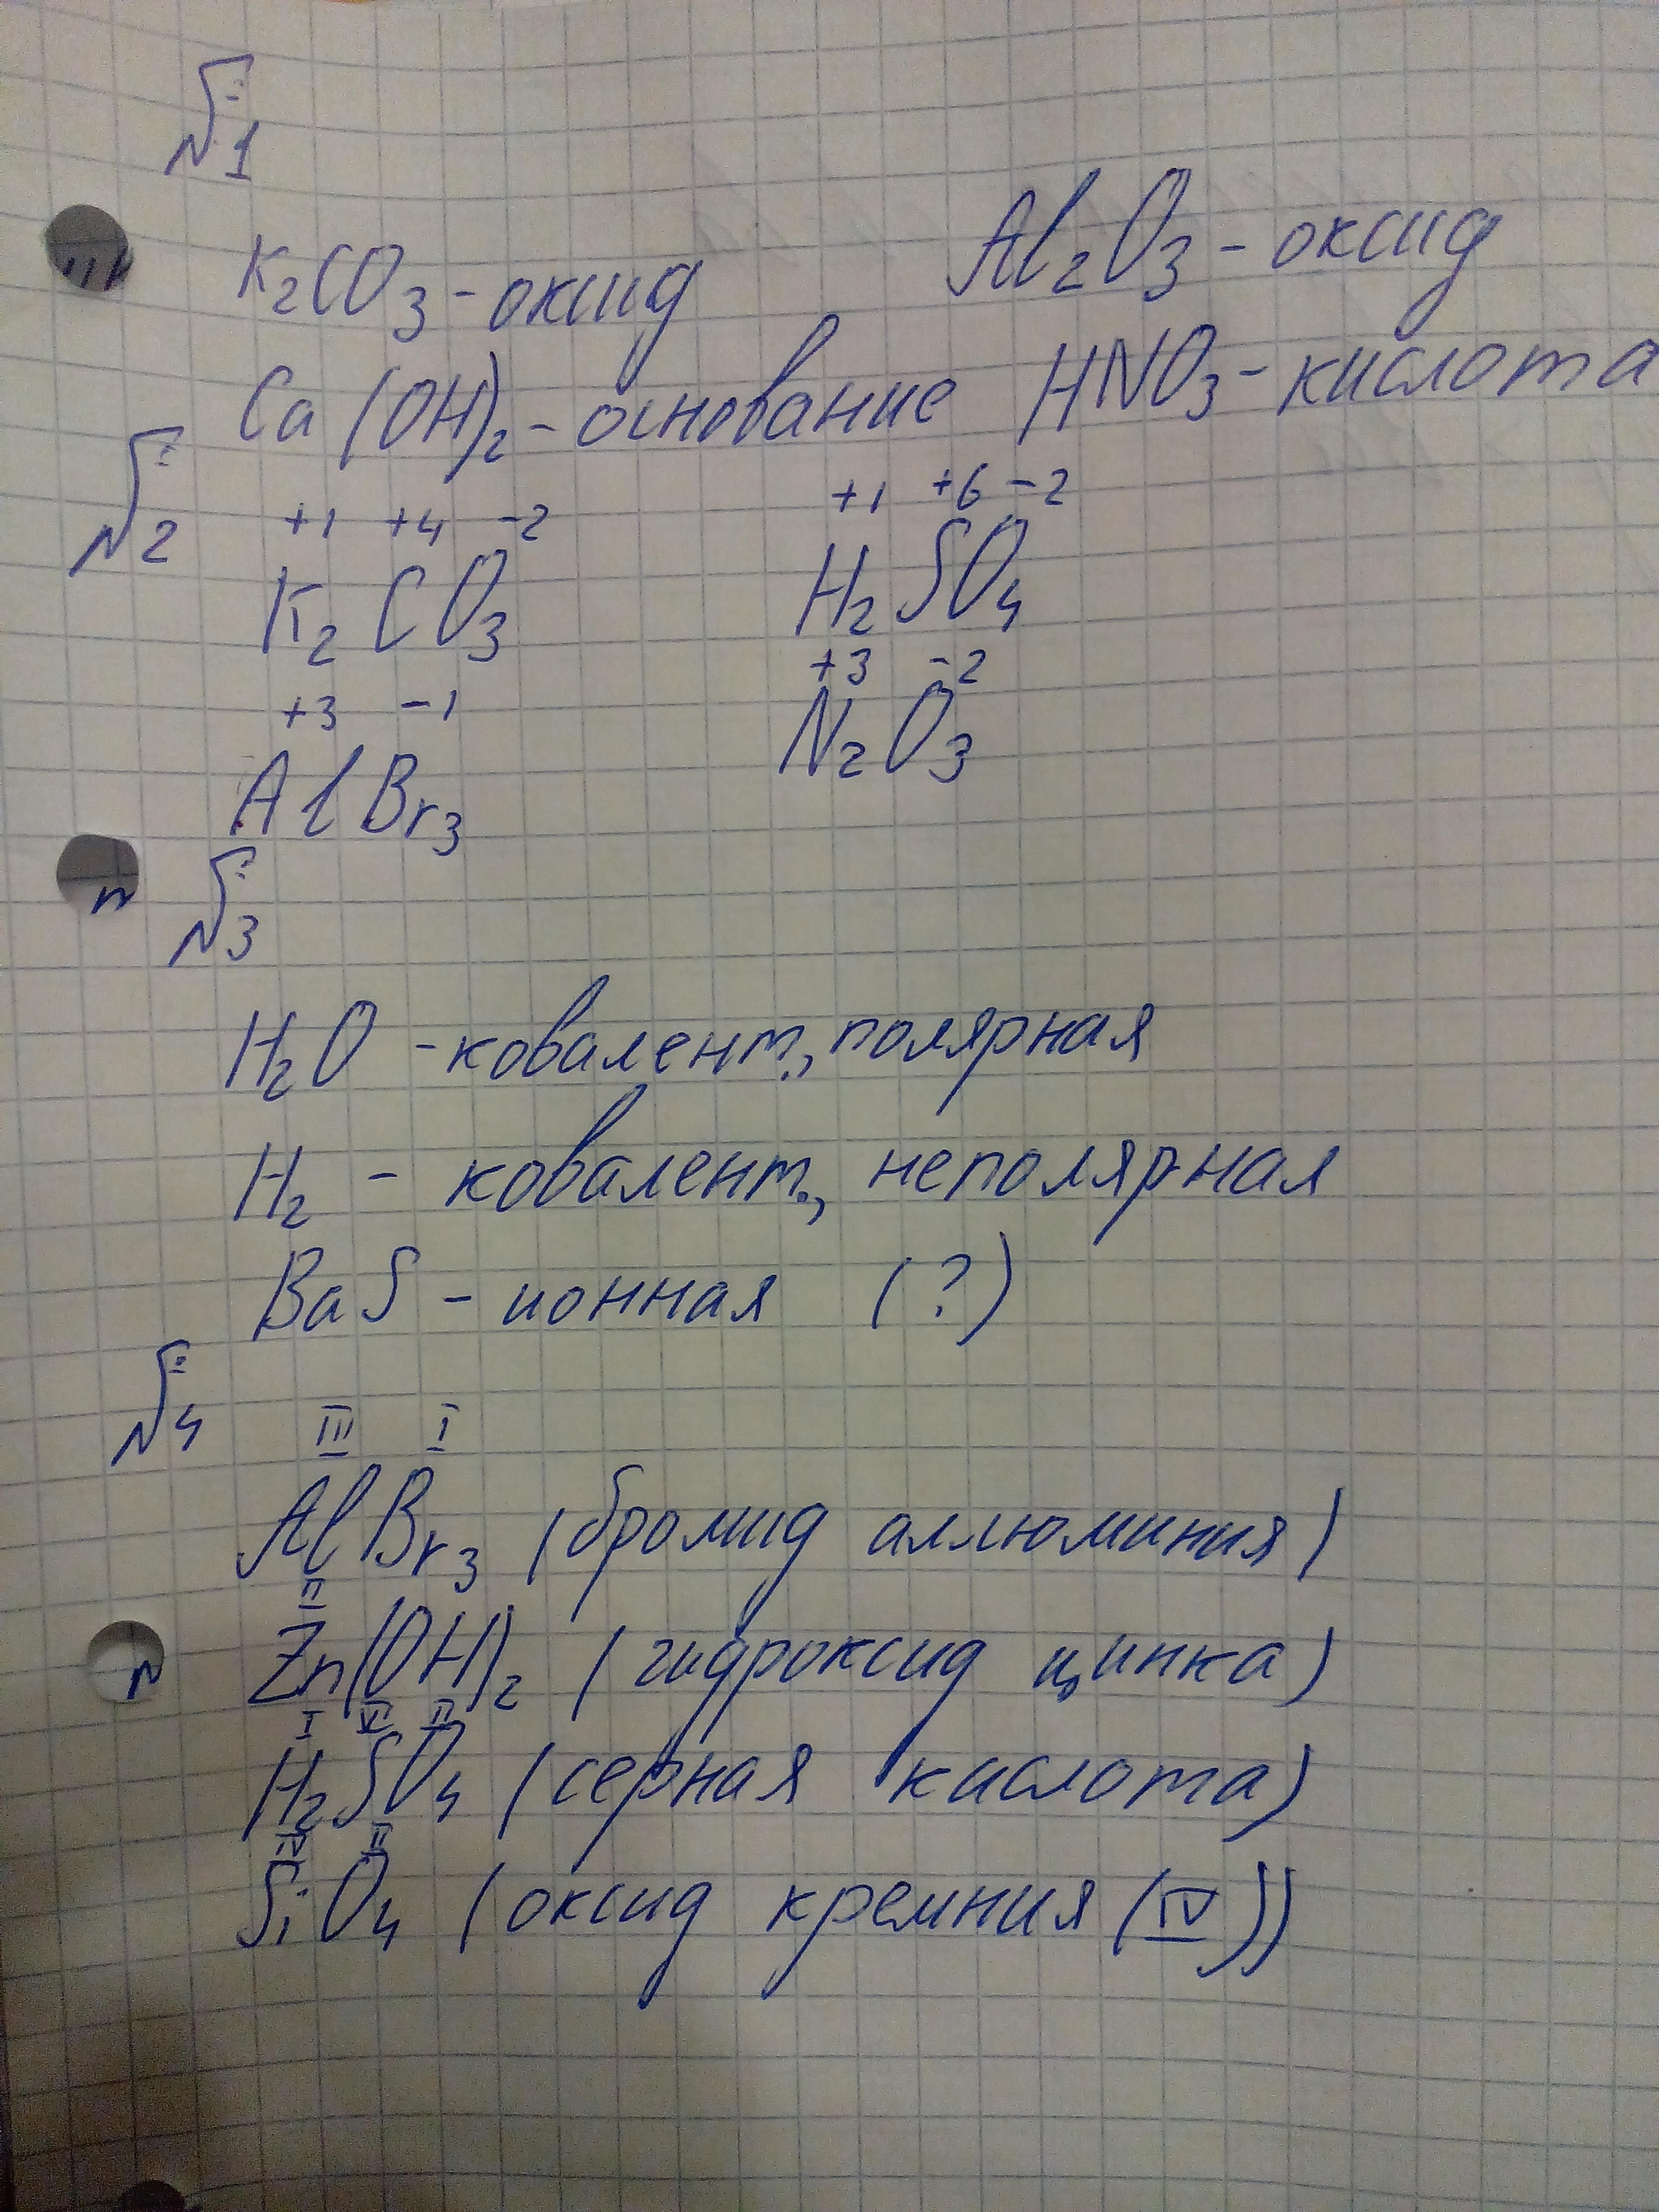 №1
K₂CO₃ - оксид Al₂O₃ - оксид
Ca(OH)₂ - основание HNO₃ - кислота
№2
+1 +4 -2 +1 +6 -2
K₂CO₃ H₂SO₄
+3 -1 +3 -2
AlBr₃ N₂O₃
№3
H₂O - ковалент., полярная
H₂ - ковалент., неполярная
BaS - ионная (?)
№4
III I
AlBr₃ (бромид аллюминия)
II
Zn(OH)₂ (гидроксид цинка)
I VI II
H₂SO₄ (серная кислота)
IV II
SiO₄ (оксид кремния (IV))